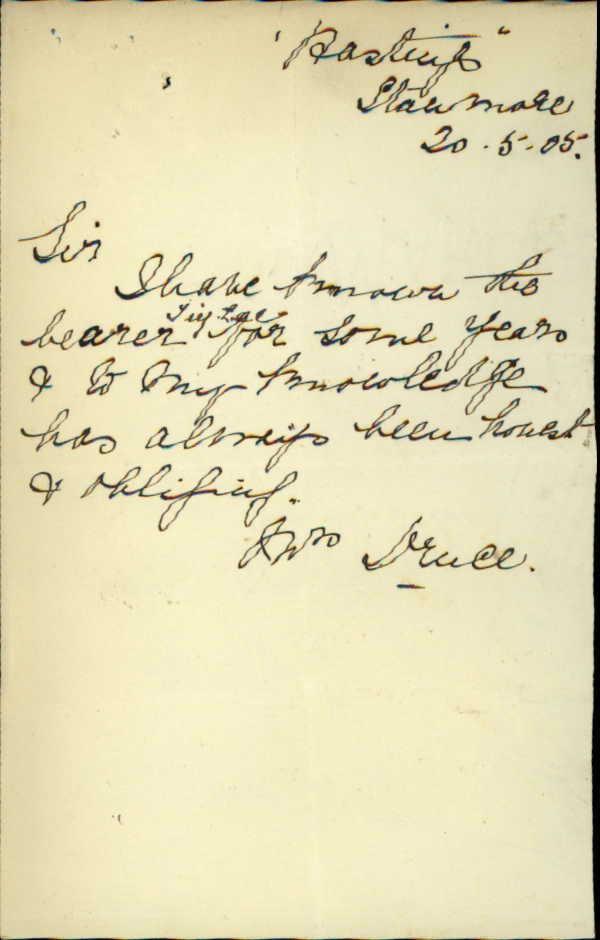 "Hastings"
Stanmore
20.5.05.
Sir
I have known the
bearer for some years
& to my knowledge
has always been honest
& obliging.
Druce.